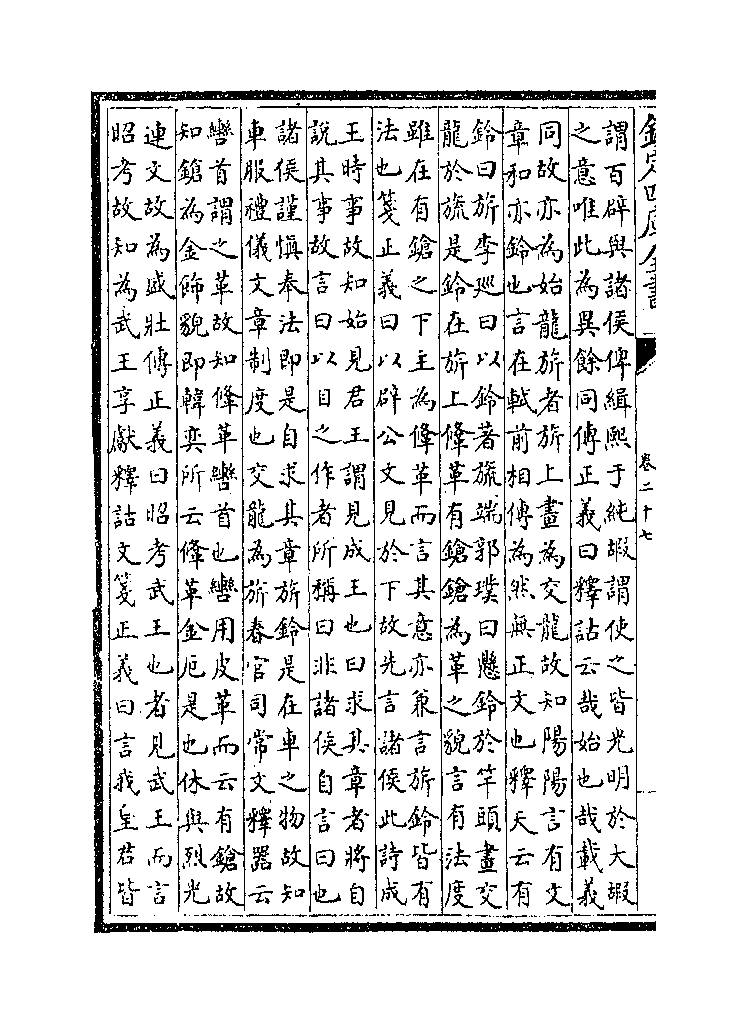 欽定四庫全書
卷二十七
謂百辟與諸侯俾緝熙于純嘏謂使之皆光明於大嘏
之意唯此為異餘同傳正義曰釋詁云哉始也哉載義
同故亦為始龍旂者旂上畫為交龍故知陽陽言有文
章和亦鈴也言在軾前相傳為然無正文也釋天云有
鈴曰旂李廵曰以鈴著旒端郭璞曰懸鈴於竿頭畫交
龍於旒是鈴在旂上鞗革有鶬鶬為革之貌言有法度
雖在有鶬之下主為鞗革而言其意亦兼言旂鈴皆有
法也箋正義曰以辟公文見於下故先言諸侯此詩成
王時事故知始見君王謂見成王也曰求其章者將自
說其事故言曰以目之作者所稱曰非諸侯自言曰也
諸侯謹慎奉法即是自求其章旂鈴是在車之物故知
車服禮儀文章制度也交龍為旂春官司常文釋器云
轡首謂之革故知鞗革轡首也轡用皮革而云有鶬故
知鶬為金飾貌即韓奕所云鞗革金厄是也休與烈光
連文故為盛壯傳正義曰昭考武王也者見武王而言
昭考故知為武王享獻釋詁文箋正義曰言我皇君皆